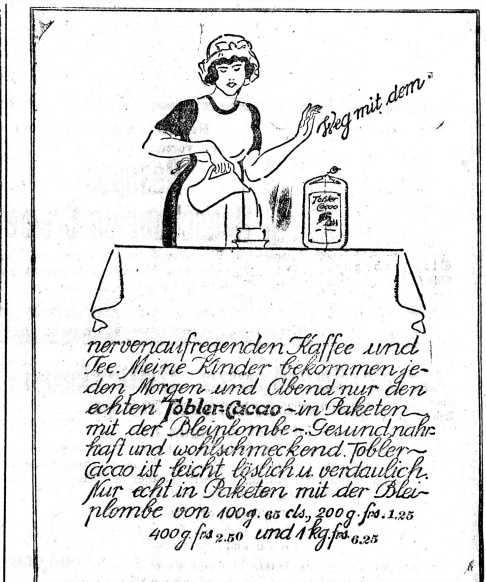 Weg mit dem
Tobler
Cacao
nervenaufregenden Kaffee und
Tee. Meine Kinder bekommen je-
den Morgen und Abend nur den
echten Tobler-Cacao - in Paketen
mit der Bleiplombe -. Gesund nahr-
haft und wohlschmeckend. Tobler-
Cacao ist leicht löslich u. verdaulich.
Nur echt in Paketen mit der Blei-
plombe von 100 g. 65 cts., 200 g. frs. 1.25
400 g. frs 2.50 und 1 kg. frs. 6.25